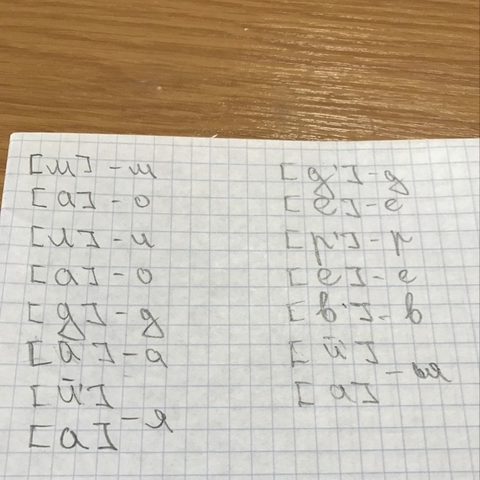 [м] - м
[а] - о
[л] - л
[а] - о
[д] - д
[а́] - а
[й']
[а] - я
[д'] - д
[е] - е
[р'] - р
[е] - е
[в'] - в
[й]
[а] - ья